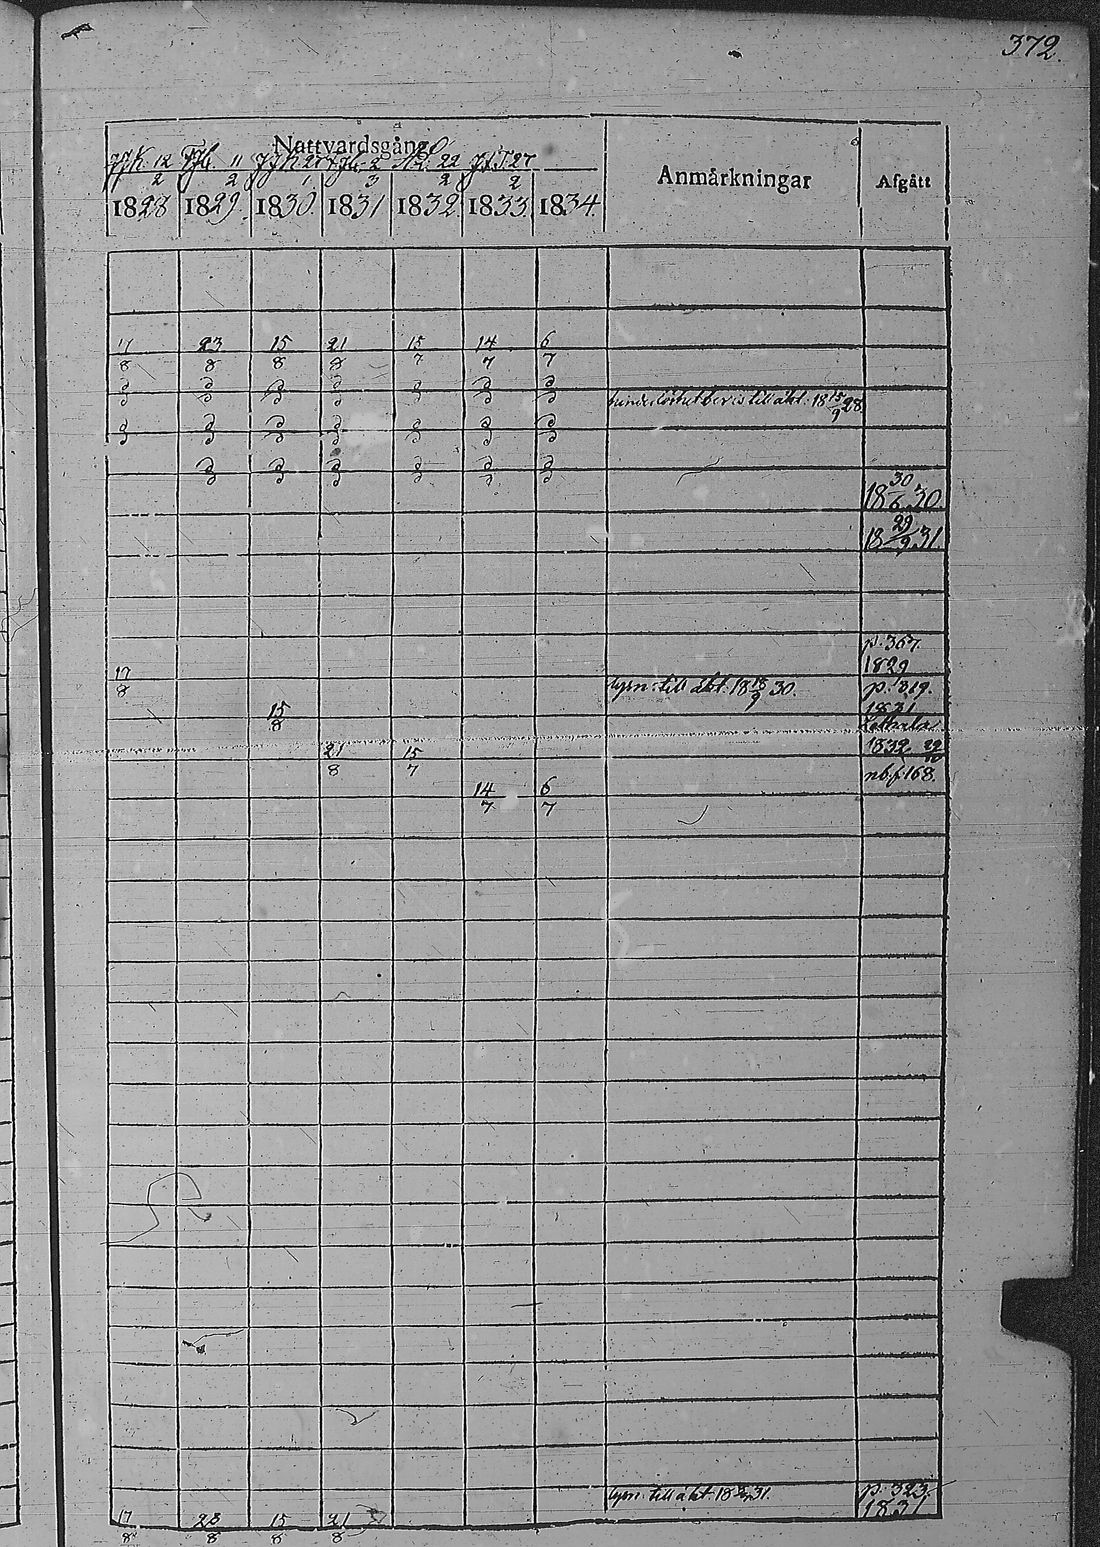 372.
Nattvardsgång
12 11 27 2 22 27
2 2 1 3 2 2
1828 1829 1830. 1831 1832 1833 1834.
Anmärkningar
Afgått
17 23 15 21 15 14 6
8 8 8 8 7 7 7
till äkt. 18 15/9 28
18 30/6 30.
18 29/9 31
p. 367.
1829
17
8
till äkt. 18 30.
p. 319.
1831
15
8
21 15
8 7
1832
nb. p 168.
14 6
7 7
till äkt. 18 31.
p. 323.
1831
17 23 15 21
8 8 8 8